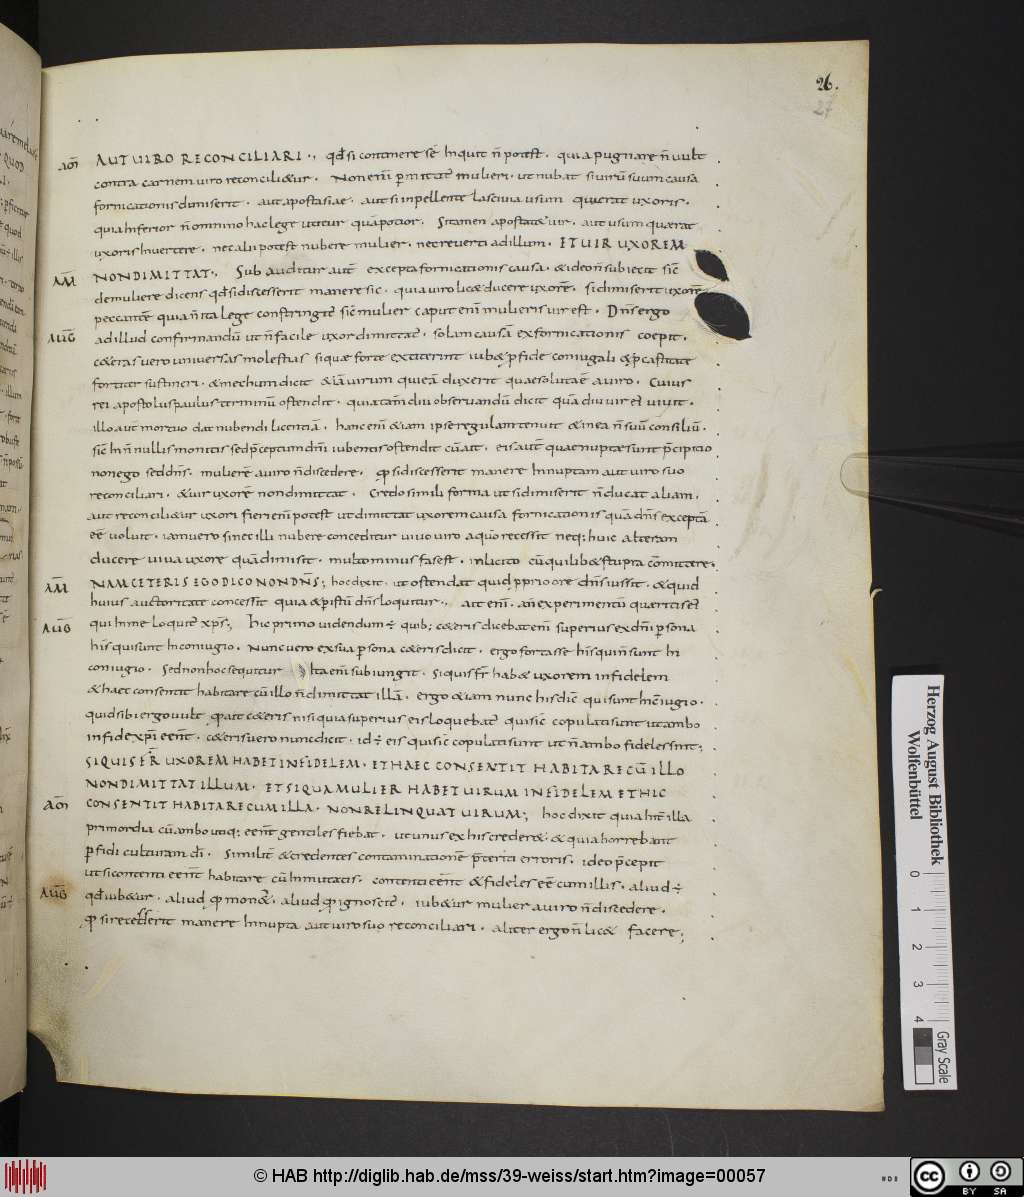 26.
27
AUT UIRO RECONCILIARI., qđ si continere se inquit n̄ potest. quia pugnare n̄ uult
contra carnem uiro reconcilietur. Non enī p̄mittat mulieri. ut nubat si uirū suum causa
fornicationis dimiserit. aut apostasiae. aut si inpellente lasciuia usum quaerat uxoris.
quia inferior n̄ omnino hac lege utitur quā potior. Si tamen apostatet uir. aut usum quaerat
uxoris inuertere. nec alii potest nubere mulier. nec reuerti ad illum. ET UIR UXOREM
NON DIMITTAT., Sub auditur autē excepta fornicationis causa. & ideo n̄ subiecit sic̄
de muliere dicens qđ si discesserit manere sic. quia uiro licet ducere uxorē. si dimiserit uxorē
peccantē quia n̄ ita lege constringit̄ sic̄ mulier caput enī mulieris uir est. Dn̄s ergo
ad illud confirmandū ut n̄ facile uxor dimittat̄. solam causā ex fornicationis coepit.
ceteras uero uniuersas molestias si quae forte extiterint iubet p̄ fide coniugali & p̄ castitate
fortiter sustineri. & mechum dicit etiā uirum qui eā duxerit quae soluta ē a uiro. Cuius
rei apostolus paulus terminū ostendit. quia tam diu obseruandū dicit quā diu uir ei uiuit.
illo aut̄ mortuo dat nubendi licentiā. hanc enī etiam ipse regulam tenuit & in ea n̄ suū consiliū.
sic̄ in n̄ nullis monitis sed p̄ceptum dn̄i iubentis ostendit cū ait. eis autē quae nuptae sunt p̄cipio
non ego sed dn̄s. mulierē a uiro n̄ discedere. qđ si discesserit manere innuptam aut uiro suo
reconciliari. & uir uxorē non dimittat. Credo simili forma ut si dimiserit n̄ ducat aliam.
aut reconcilietur uxori fieri enī potest ut dimittat uxorem causa fornicationis quā dn̄s exceptā
eē uoluit. iam uero si nec illi nubere conceditur uiuo uiro a quo recessit neq; huic alteram
ducere uiua uxore quā dimisit. multo minus fas est. inlicito cū quilib& stupra com̄ittere.
NAM CETERIS EGO DICO NON DN̄S; hoc dixit. ut ostendat quid proprio ore dn̄s iussit. & quid
huius auctoritate concessit quia & p̄ istū dn̄s loquitur., ait enī. an experimentū quaeritis ei
qui in me loquit̄ xp̄s; Hic primo uidendum ÷ quib; ceteris dicebat enī superius ex dn̄i p̄sona
his qui sunt in coniugio. Nunc uero ex sua p̄sona ceteris dicit. ergo fortasse his qui n̄ sunt in
coniugio. Sed non hoc sequitur Ita enī subiungit. Si quis fr̄ habet uxorem infidelem
& haec consentit habitare cū illo n̄ dimittat illā. ergo etiam nunc his dic̄ qui sunt in c̄iugio.
quid sibi ergo uult qđ ait ceteris nisi quia superius eis loquebat̄ qui sic̄ copulati sunt ut ambo
in fide xp̄i eēnt. ceteris uero nunc dicit. id ÷ eis qui sic̄ copulati sunt ut n̄ ambo fideles sint;
SI QUIS FR̄ UXOREM HABET INFIDELEM. ET HAEC CONSENTIT HABITARE CŪ ILLO
NON DIMITTAT ILLUM. ET SI QUA MULIER HABET UIRUM INFIDELEM ET HIC
CONSENTIT HABITARE CUM ILLA. NON RELINQUAT UIRUM; hoc dixit quia int̄ illa
primordia cū ambo utiq; eēnt gentiles fiebat. ut unus ex his crederet. & quia horrebant
p̄fidi culturam dī. similit̄ & credentes contaminationē p̄teriti erroris. ideo p̄cepit
ut si contenti eēnt habitare cū inuitatis. contenti eēnt & fideles eē cum illis. aliud ÷
qđ iubetur. aliud qđ monet̄. aliud qđ ignoscit̄. iubetur mulier a uiro n̄ discedere.
qđ si recesserit manere innupta aut uiro suo reconciliari. aliter ergo n̄ licet facere;
AM̄
AUḠ
AM̄
AUḠ
AUḠ
Herzog August Bibliothek
Wolfenbüttel
0 1 2 3 4
Gray Scale
© HAB http://diglib.hab.de/mss/39-weiss/start.htm?image=00057
cc BY SA